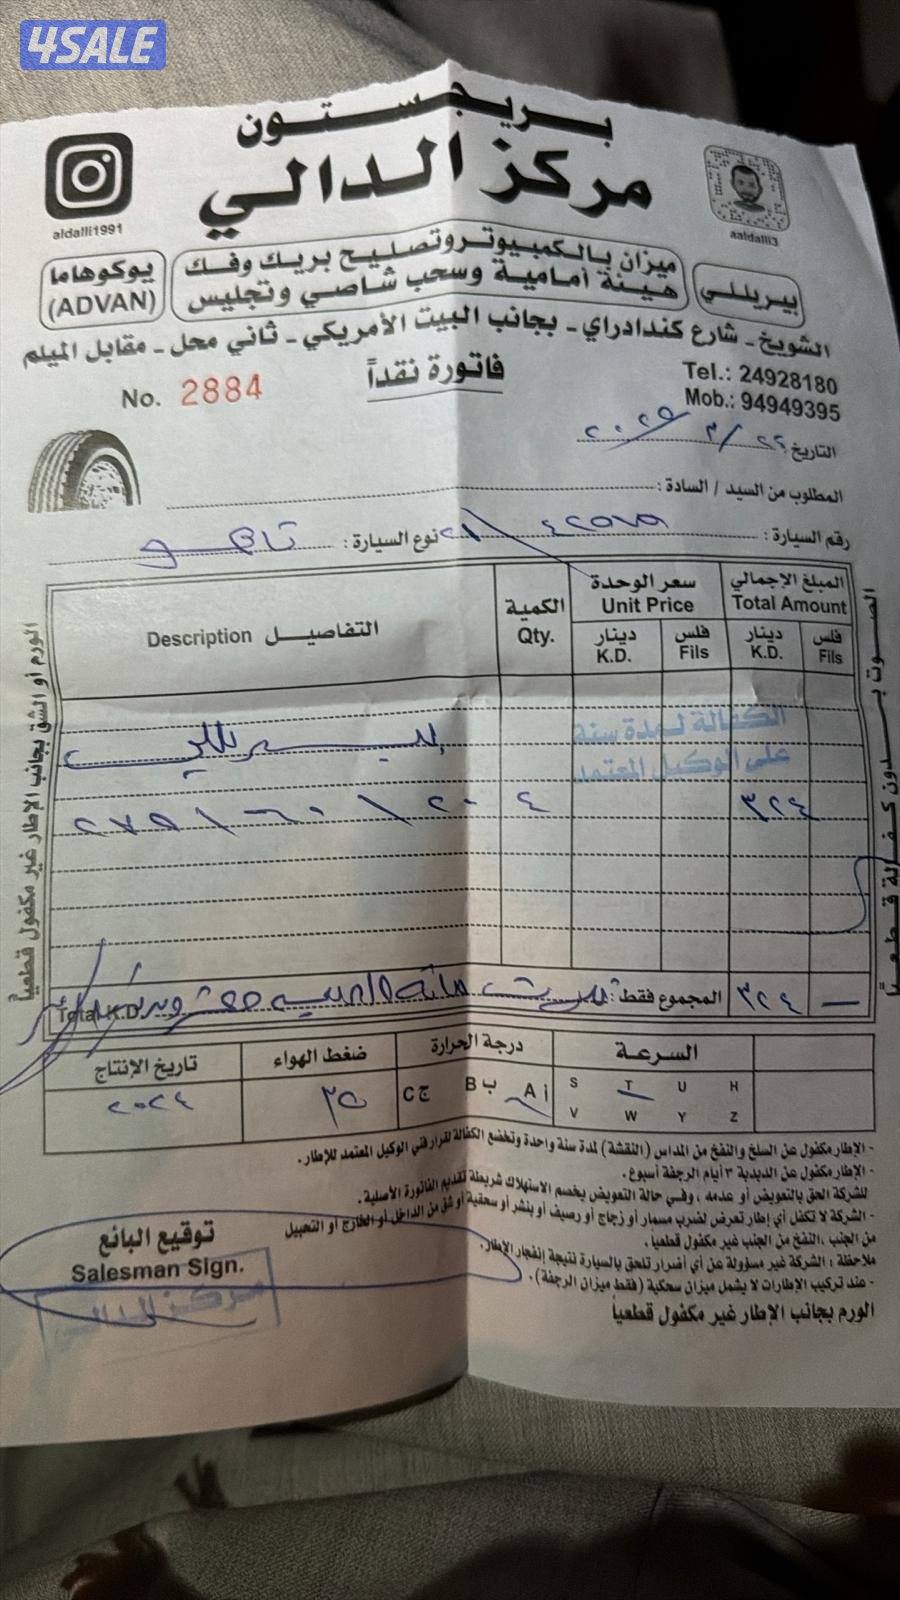 4SALE
بريجستون
مركز الدالي
aldalli1991
aaldalli3
ميزان بالكمبيوتر وتصليح بريك وفك
هيئة أمامية وسحب شاصي وتجليس
يوكوهاما
(ADVAN)
بيريللي
الشويخ - شارع كندادراي - بجانب البيت الأمريكي - ثاني محل - مقابل الميلم
فاتورة نقداً
No. 2884
Tel.: 24928180
Mob.: 94949395
التاريخ ٢٤ / ٣ / ٢٠٢٥
المطلوب من السيد / السادة :
رقم السيارة :
نوع السيارة : تاهو
المبلغ الإجمالي
Total Amount
سعر الوحدة
Unit Price
الكمية
Qty.
التفاصيل Description
فلس
Fils
دينار
K.D.
فلس
Fils
دينار
K.D.
الكفالة لمدة سنة
على الوكيل المعتمد
بيريللي
٢٧٥ / ٦٠ / ٢٠ ٤ ٣٢٤
المجموع فقط :
٣٢٤ —
Total K.D.
الورم أو الشق بجانب الإطار غير مكفول قطعياً
الصوت بدون كفالة قطعياً
السرعة
درجة الحرارة
ضغط الهواء
تاريخ الإنتاج
S T U H
V W Y Z
A أ B ب C ج
٣٥
٢٠٢٤
- الإطار مكفول عن السلخ والنفخ من المداس (النقشة) لمدة سنة واحدة وتخضع الكفالة لقرار فني الوكيل المعتمد للإطار.
- الإطار مكفول عن الدبدبة ٣ أيام الرجفة أسبوع.
للشركة الحق بالتعويض أو عدمه ، وفي حالة التعويض يخصم الاستهلاك شريطة تقديم الفاتورة الأصلية.
- الشركة لا تكفل أي إطار تعرض لضرب مسمار أو زجاج أو رصيف أو بنشر أو سحقية أو شق من الداخل أو الخارج أو التحبيل
من الجنب ، النفخ من الجنب غير مكفول قطعياً.
ملاحظة : الشركة غير مسؤولة عن أي أضرار تلحق بالسيارة نتيجة إنفجار الإطار.
- عند تركيب الإطارات لا يشمل ميزان سحكية (فقط ميزان الرجفة).
الورم بجانب الإطار غير مكفول قطعياً
توقيع البائع
Salesman Sign.
مركز الدالي